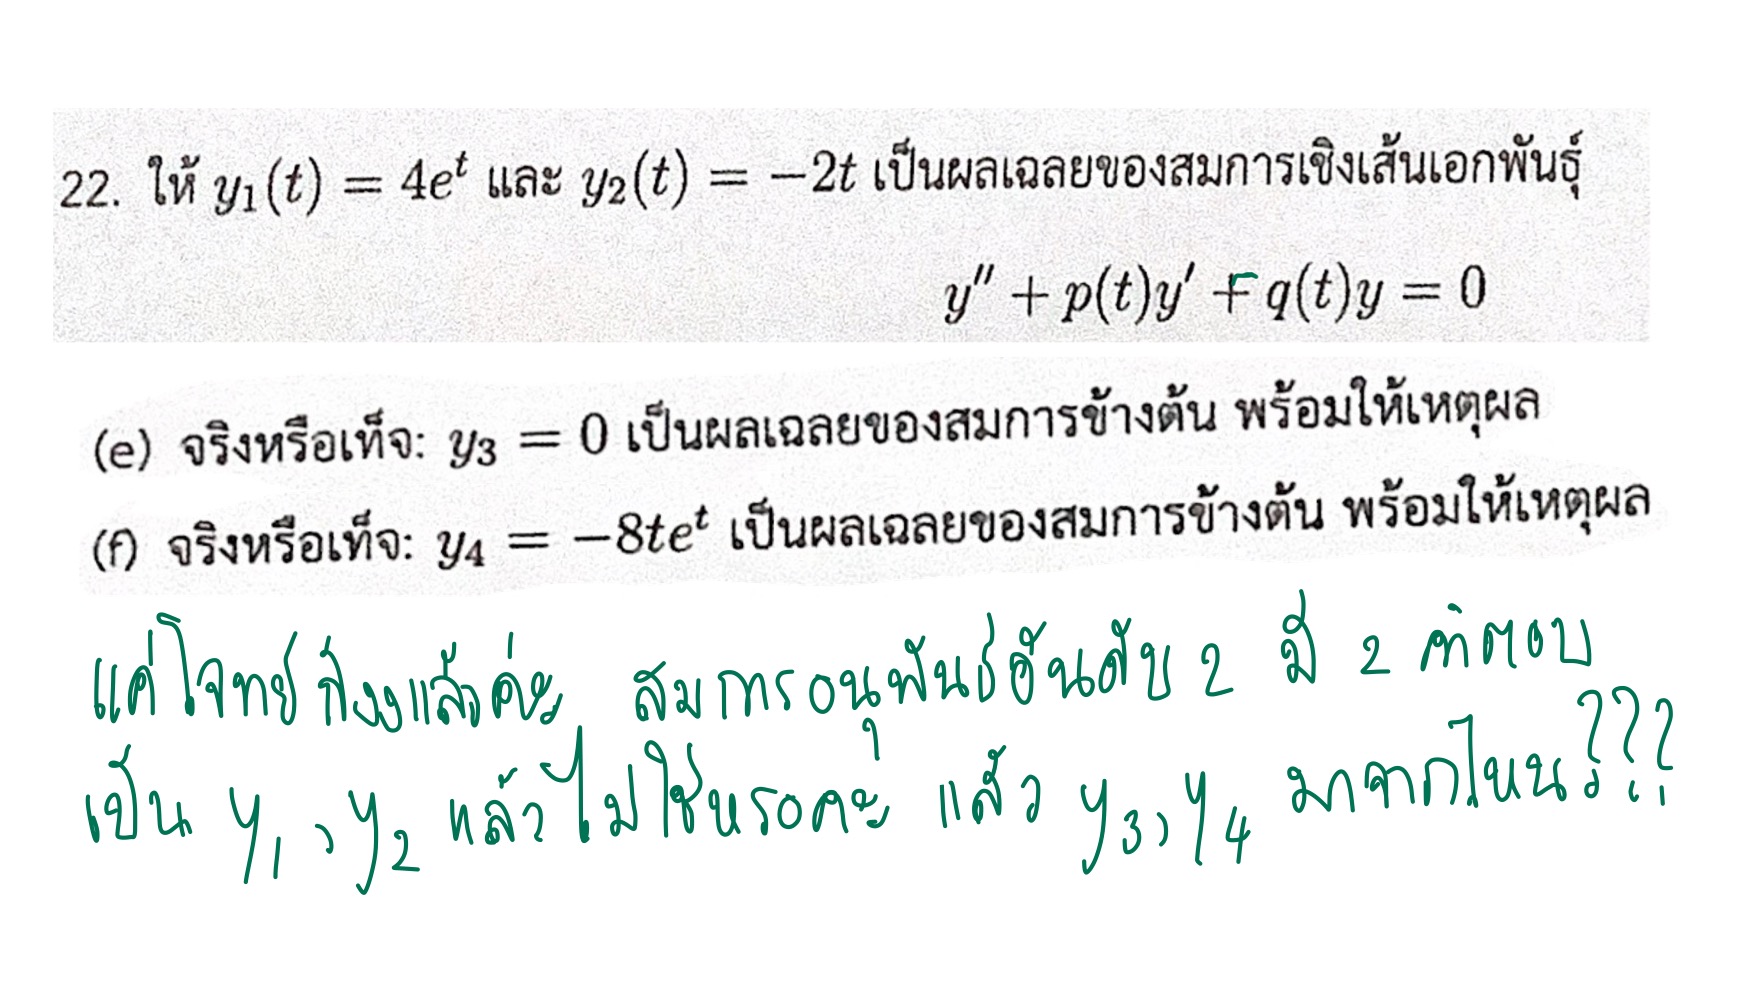 22. ให้ y₁(t) = 4eᵗ และ y₂(t) = −2t เป็นผลเฉลยของสมการเชิงเส้นเอกพันธุ์
y″ + p(t)y′ + q(t)y = 0
(e) จริงหรือเท็จ: y₃ = 0 เป็นผลเฉลยของสมการข้างต้น พร้อมให้เหตุผล
(f) จริงหรือเท็จ: y₄ = −8teᵗ เป็นผลเฉลยของสมการข้างต้น พร้อมให้เหตุผล
แค่โจทย์ก็งงแล้วค่ะ สมการอนุพันธ์อันดับ 2 มี 2 คำตอบ
เป็น y₁, y₂ แล้วไม่ใช่หรอคะ แล้ว y₃, y₄ มาจากไหน???